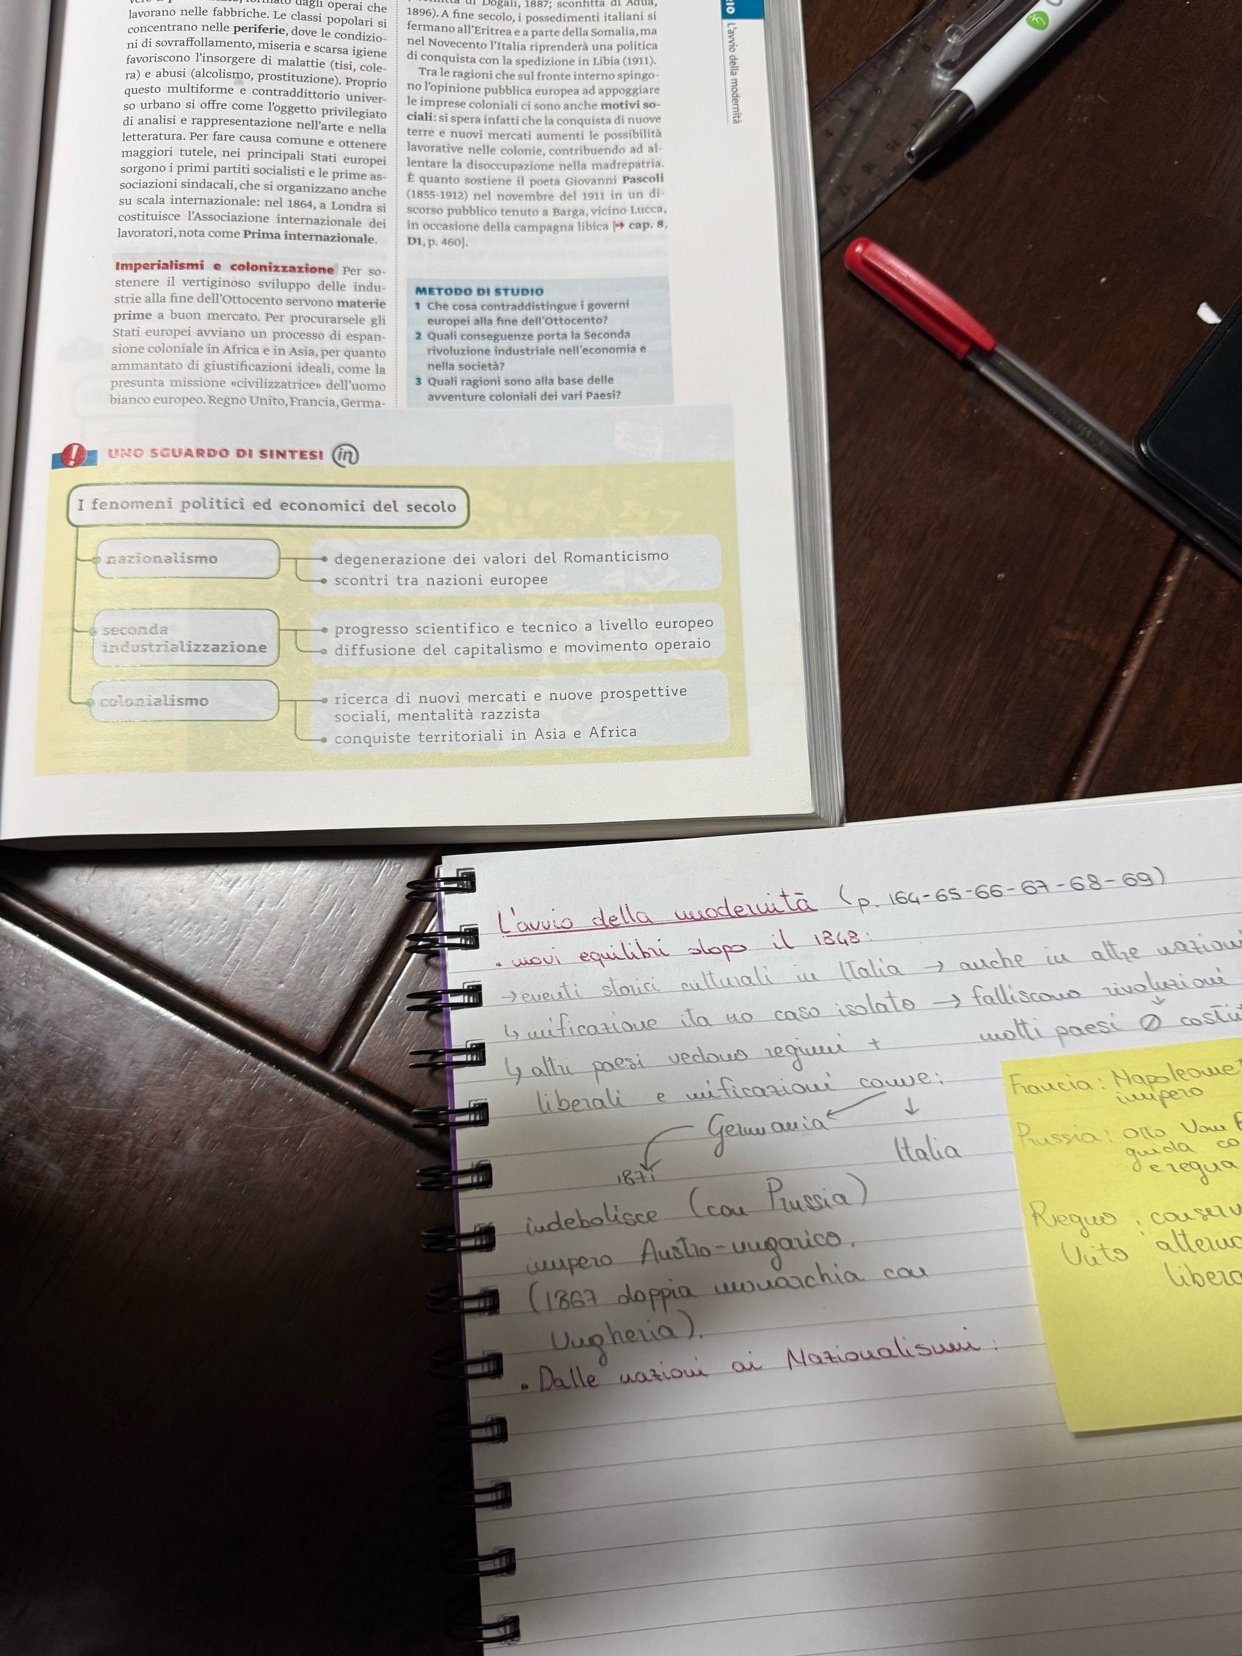 lavorano nelle fabbriche. Le classi popolari si
concentrano nelle periferie, dove le condizio-
ni di sovraffollamento, miseria e scarsa igiene
favoriscono l'insorgere di malattie (tisi, cole-
ra) e abusi (alcolismo, prostituzione). Proprio
questo multiforme e contraddittorio univer-
so urbano si offre come l'oggetto privilegiato
di analisi e rappresentazione nell'arte e nella
letteratura. Per fare causa comune e ottenere
maggiori tutele, nei principali Stati europei
sorgono i primi partiti socialisti e le prime as-
sociazioni sindacali, che si organizzano anche
su scala internazionale: nel 1864, a Londra si
costituisce l'Associazione internazionale dei
lavoratori, nota come Prima internazionale.
Imperialismi e colonizzazione Per so-
stenere il vertiginoso sviluppo delle indu-
strie alla fine dell'Ottocento servono materie
prime a buon mercato. Per procurarsele gli
Stati europei avviano un processo di espan-
sione coloniale in Africa e in Asia, per quanto
ammantato di giustificazioni ideali, come la
presunta missione «civilizzatrice» dell'uomo
bianco europeo. Regno Unito, Francia, Germa-
di Dogali, 1887; sconfitta di Adua,
1896). A fine secolo, i possedimenti italiani si
fermano all'Eritrea e a parte della Somalia, ma
nel Novecento l'Italia riprenderà una politica
di conquista con la spedizione in Libia (1911).
Tra le ragioni che sul fronte interno spingo-
no l'opinione pubblica europea ad appoggiare
le imprese coloniali ci sono anche motivi so-
ciali: si spera infatti che la conquista di nuove
terre e nuovi mercati aumenti le possibilità
lavorative nelle colonie, contribuendo ad al-
lentare la disoccupazione nella madrepatria.
È quanto sostiene il poeta Giovanni Pascoli
(1855-1912) nel novembre del 1911 in un di-
scorso pubblico tenuto a Barga, vicino Lucca,
in occasione della campagna libica [➜ cap. 8,
D1, p. 460].
METODO DI STUDIO
1 Che cosa contraddistingue i governi
europei alla fine dell'Ottocento?
2 Quali conseguenze porta la Seconda
rivoluzione industriale nell'economia e
nella società?
3 Quali ragioni sono alla base delle
avventure coloniali dei vari Paesi?
L'avvio della modernità
! UNO SGUARDO DI SINTESI in
I fenomeni politici ed economici del secolo
nazionalismo
degenerazione dei valori del Romanticismo
scontri tra nazioni europee
seconda
industrializzazione
progresso scientifico e tecnico a livello europeo
diffusione del capitalismo e movimento operaio
colonialismo
ricerca di nuovi mercati e nuove prospettive
sociali, mentalità razzista
conquiste territoriali in Asia e Africa
L'avvio della modernità (p. 164-65-66-67-68-69)
• nuovi equilibri dopo il 1848:
→ eventi storici culturali in Italia → anche in altre nazioni
↳ unificazione ita no caso isolato → falliscono rivoluzioni
↳ altri paesi vedono regimi + molti paesi Ø
liberali e unificazioni come:
Germania
Italia
1871
indebolisce (con Prussia)
impero Austro-ungarico.
(1867 doppia monarchia con
Ungheria).
• Dalle nazioni ai Nazionalismi:
Francia: Napoleone
impero
Prussia: Otto Von
guida
Regno
Unito